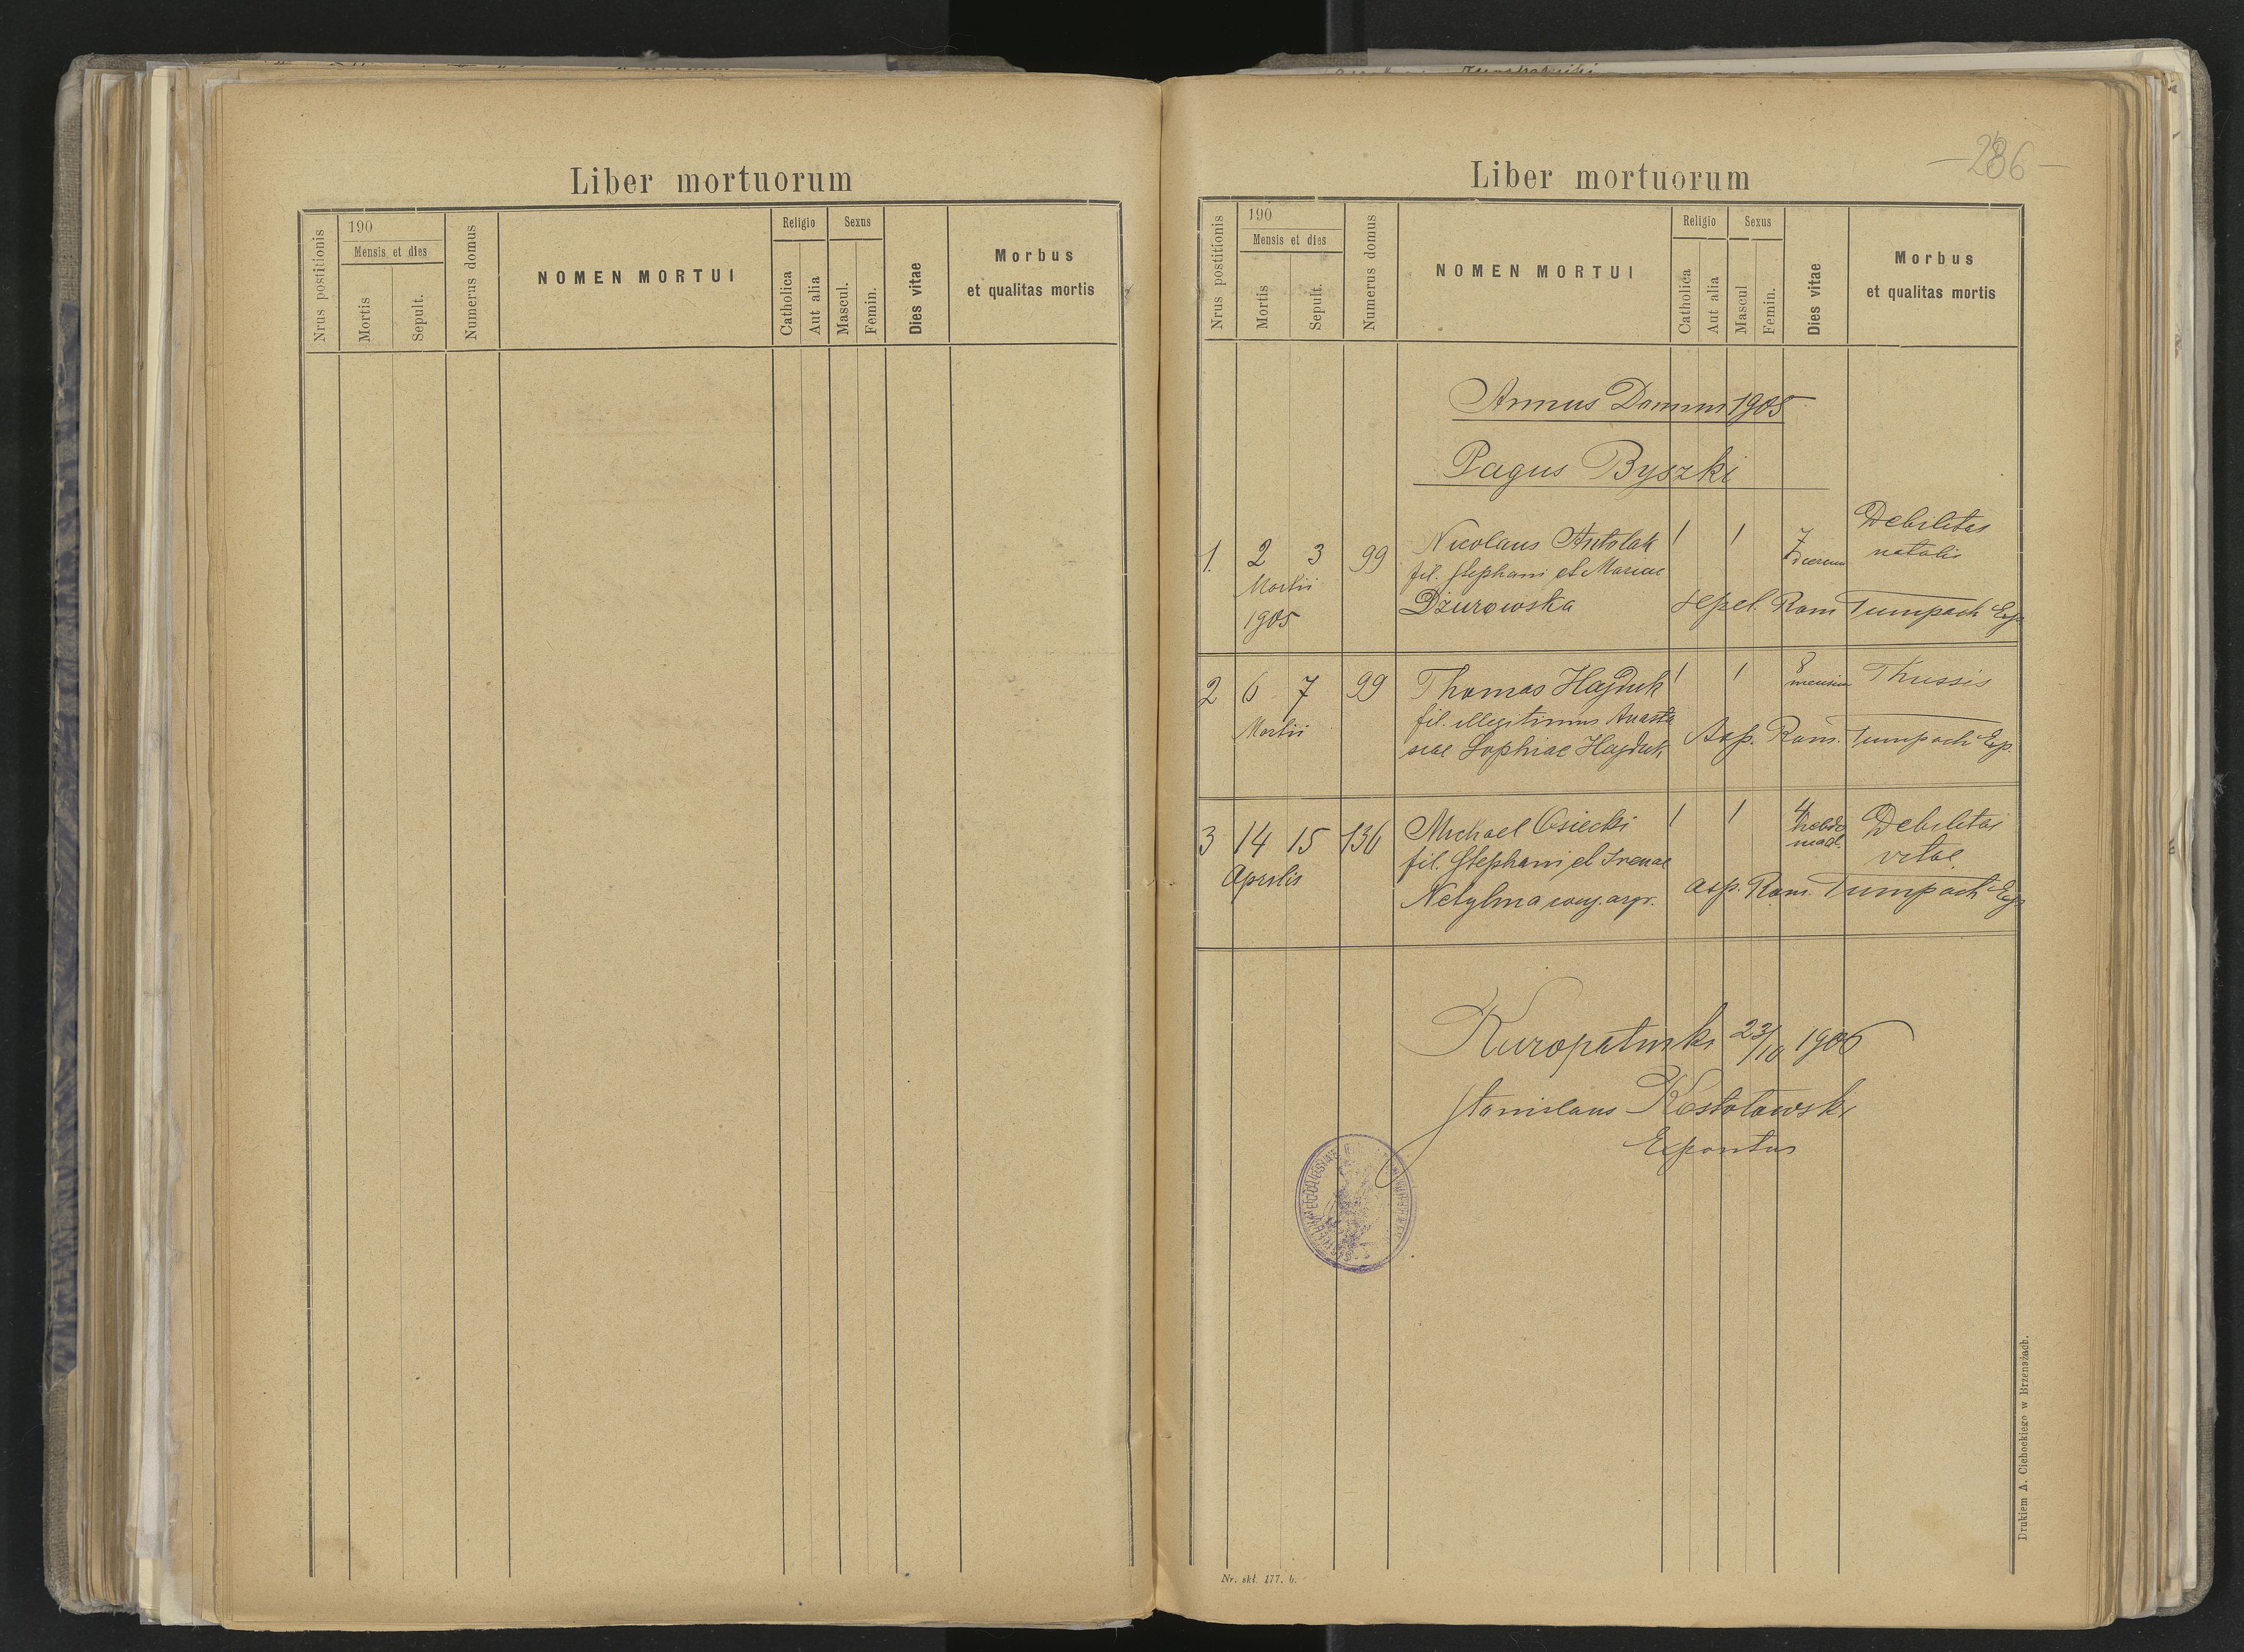 Liber mortuorum
Nrus postitionis
190
Mensis et dies
Mortis
Sepult.
Numerus domus
NOMEN MORTUI
Religio
Catholica
Aut alia
Sexus
Mascul.
Femin.
Dies vitae
Morbus
et qualitas mortis
Liber mortuorum
286
Nrus postitionis
190
Mensis et dies
Mortis
Sepult.
Numerus domus
NOMEN MORTUI
Religio
Catholica
Aut alia
Sexus
Mascul
Femin.
Dies vitae
Morbus
et qualitas mortis
Annus Domini 1905
Pagus Byszki
1. 2 3 99 Nicolaus Antolak 1 1 7 Debilitas
Martii fil. Stephani et Mariae dierum natalis
1905 Dżurowska sepel. Rom Tumpach Exp.
2 6 7 99 Thomas Hajduk 1 1 8 mensium Thussis
Martii fil. illegitimus Anasta
siae Sophiae Hajduk Asp. Rom. Tumpach Exp.
3 14 15 136 Michael Osiecki 1 1 4 hebdo Debilitas
Aprilis fil. Stephani et Irenae mad. vitae
conj. asp. Rom. Tumpach Exp
23/10 1906
Stanislaus
Expositus
Drukiem A. Cichockiego w Brzeżanach.
Nr. skł. 177. b.